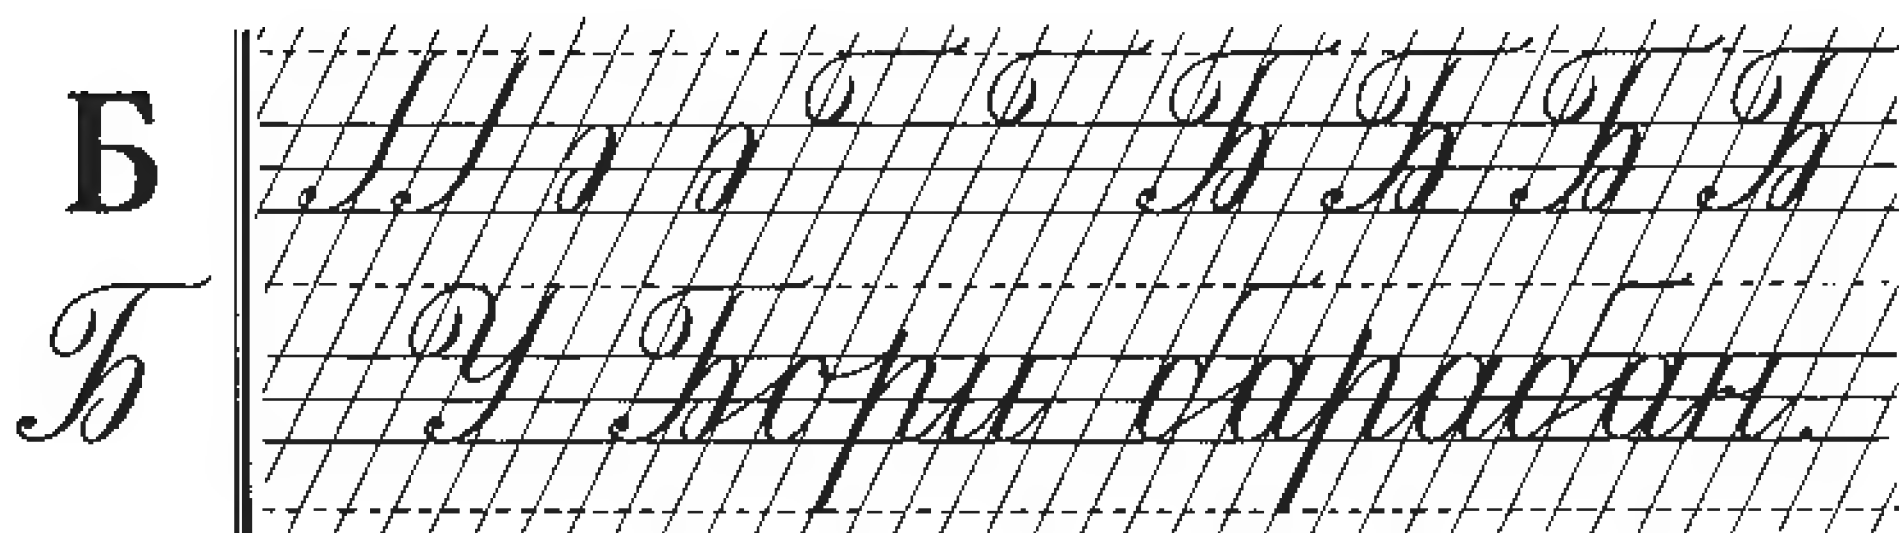 Б Б Б Б Б
Б У Бори барабан.